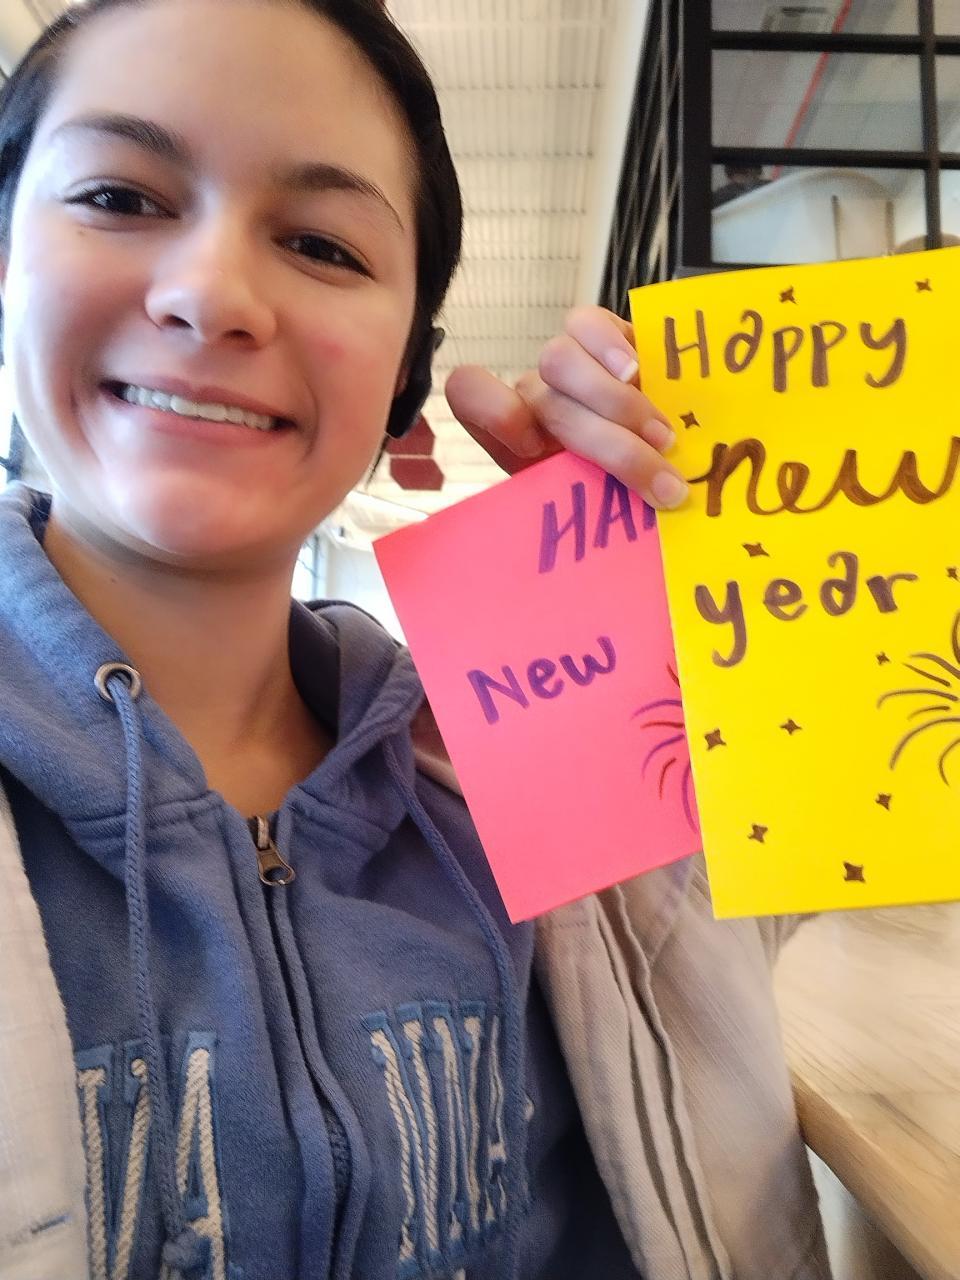 Happy
New
year
HA
New